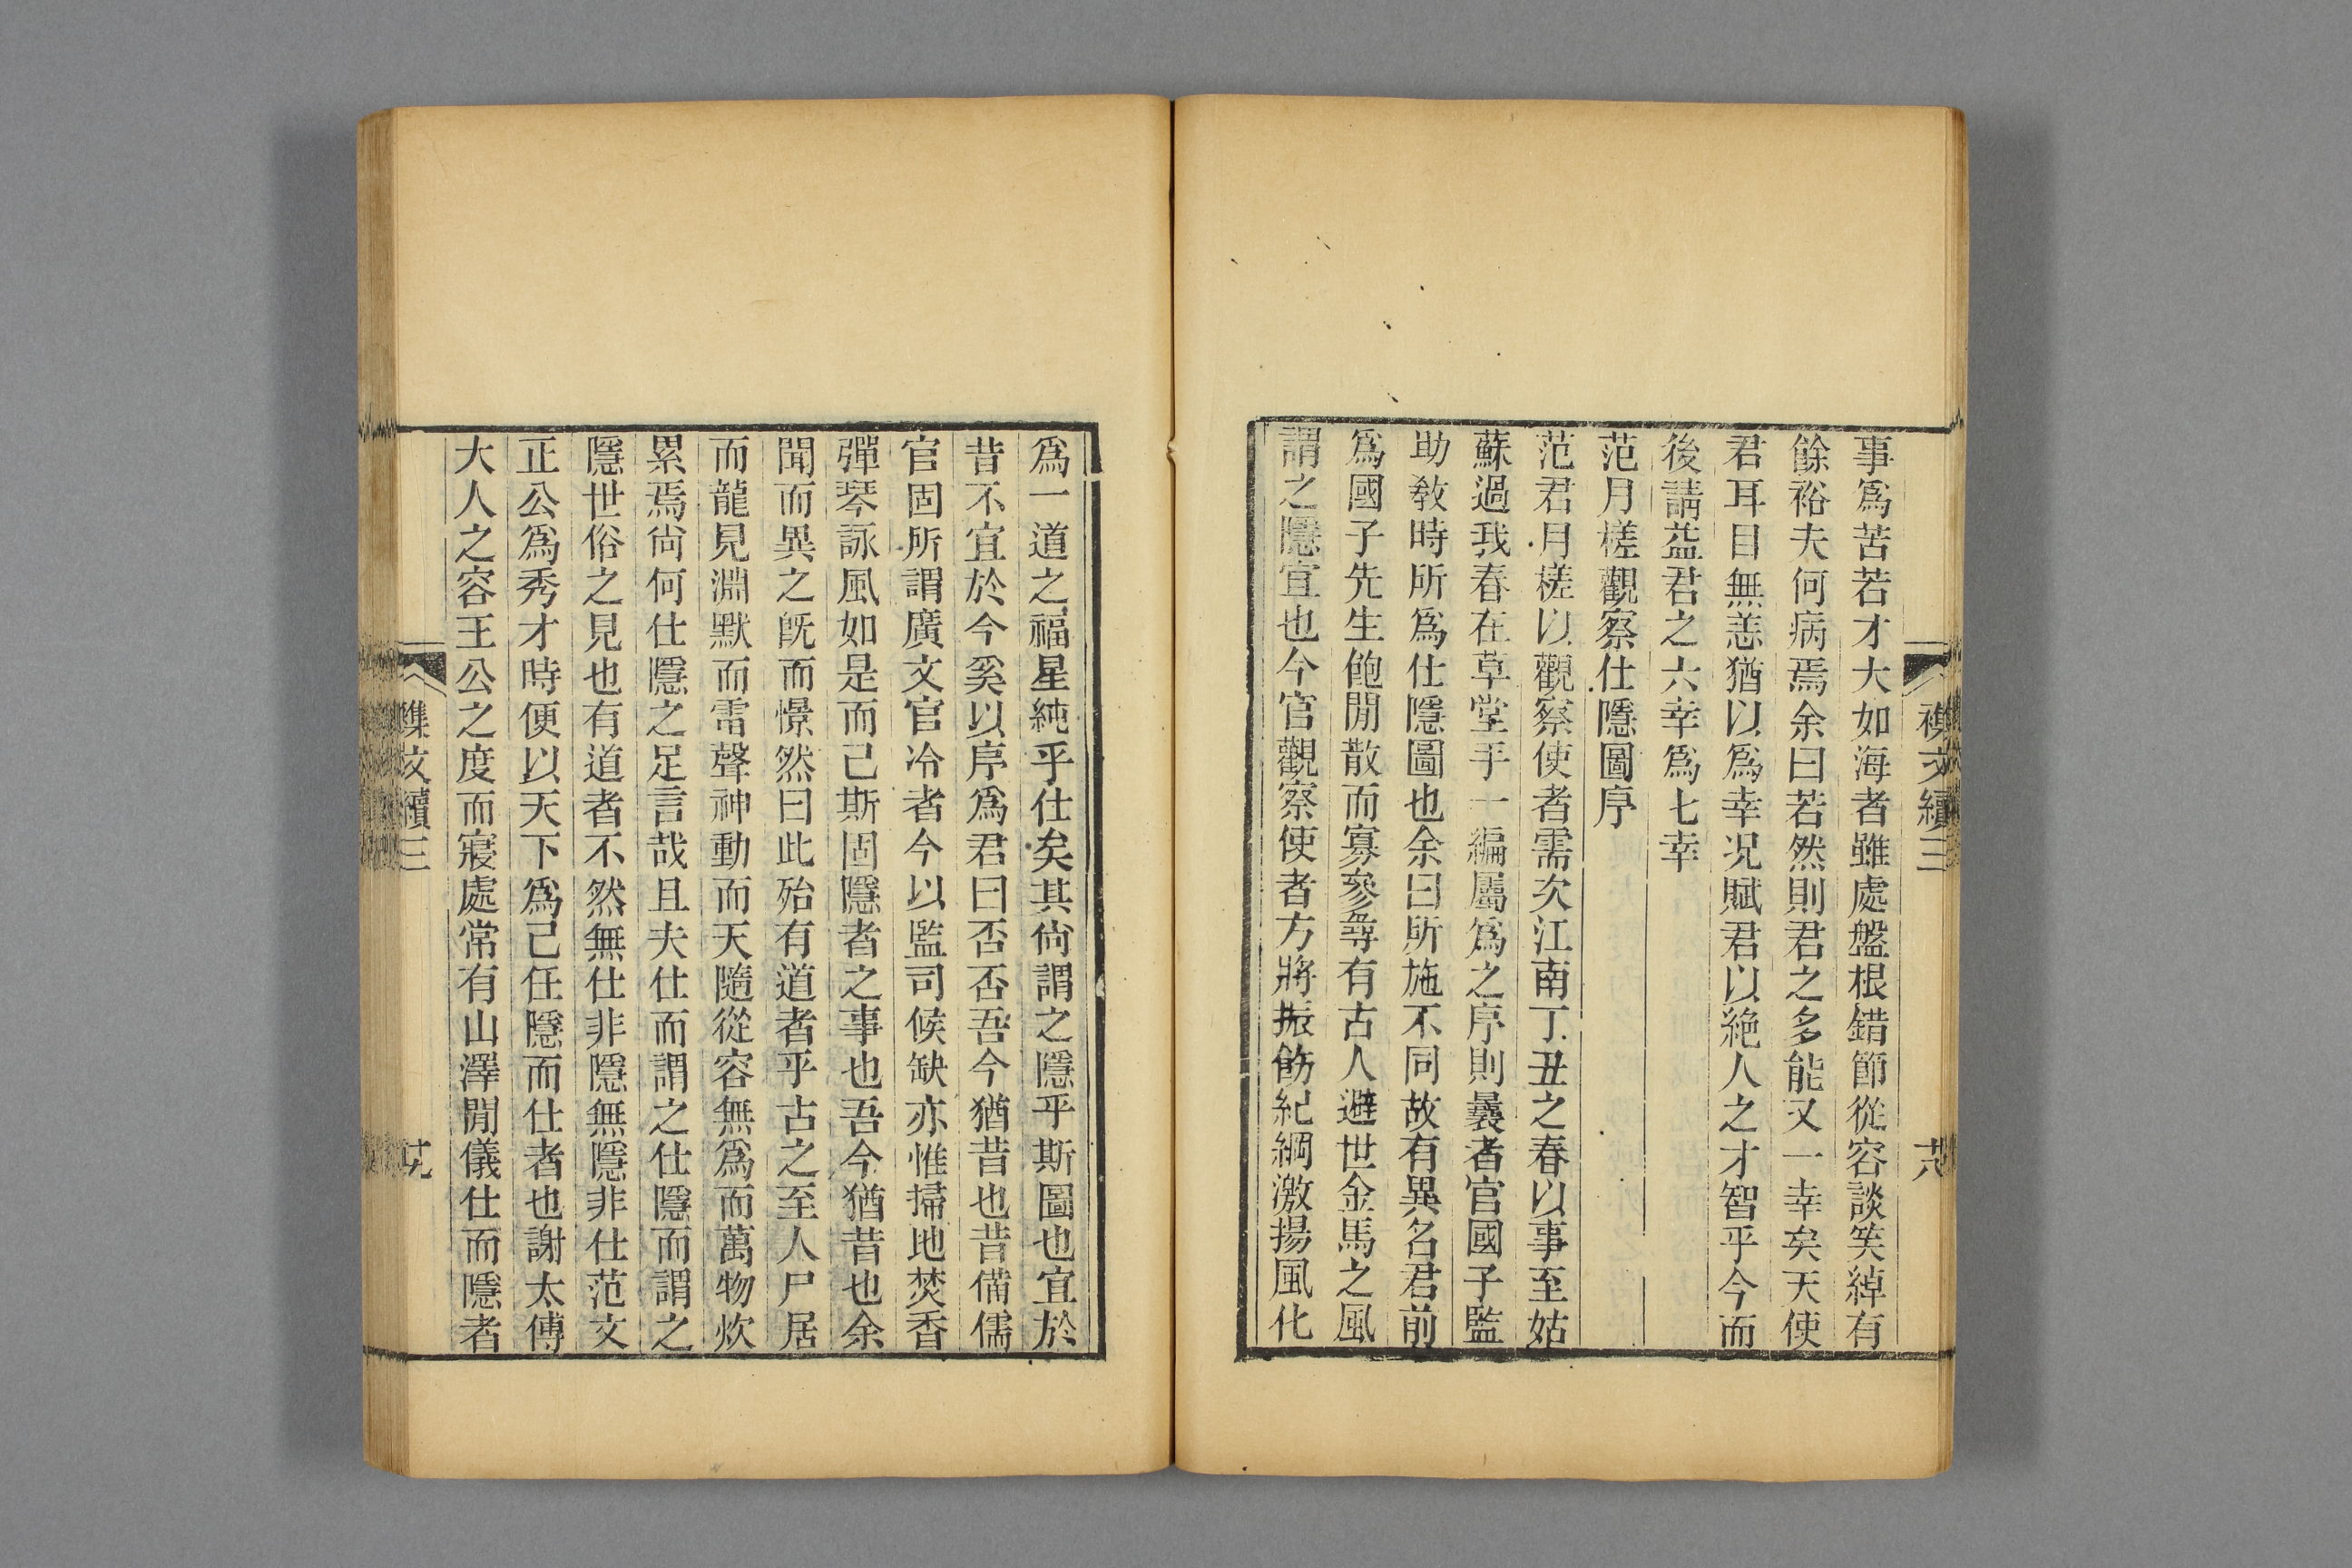 襍文續三
六
事爲苦若才大如海者雖處盤根錯節從容談笑綽有
餘裕夫何病焉余曰若然則君之多能又一幸矣天使
君耳目無恙猶以爲幸况賦君以絶人之才智乎今而
後請益君之六幸爲七幸
范月槎觀察仕隱圖序
范君月槎以觀察使者需次江南丁丑之春以事至姑
蘇過我春在草堂手一編屬爲之序則曩者官國子監
助敎時所爲仕隱圖也余曰所施不同故有異名君前
爲國子先生飽閒散而寡參尋有古人避世金馬之風
謂之隱宜也今官觀察使者方將振飭紀綱激揚風化
爲一道之福星純乎仕矣其尙謂之隱乎斯圖也宜於
昔不宜於今奚以序爲君曰否否吾今猶昔也昔備儒
官固所謂廣文官冷者今以監司候缺亦惟掃地焚香
彈琴詠風如是而已斯固隱者之事也吾今猶昔也余
聞而異之旣而憬然曰此殆有道者乎古之至人尸居
而龍見淵默而雷聲神動而天隨從容無爲而萬物炊
累焉尙何仕隱之足言哉且夫仕而謂之仕隱而謂之
隱世俗之見也有道者不然無仕非隱無隱非仕范文
正公爲秀才時便以天下爲己任隱而仕者也謝太傅
大人之容王公之度而寢處常有山澤閒儀仕而隱者
襍文續三